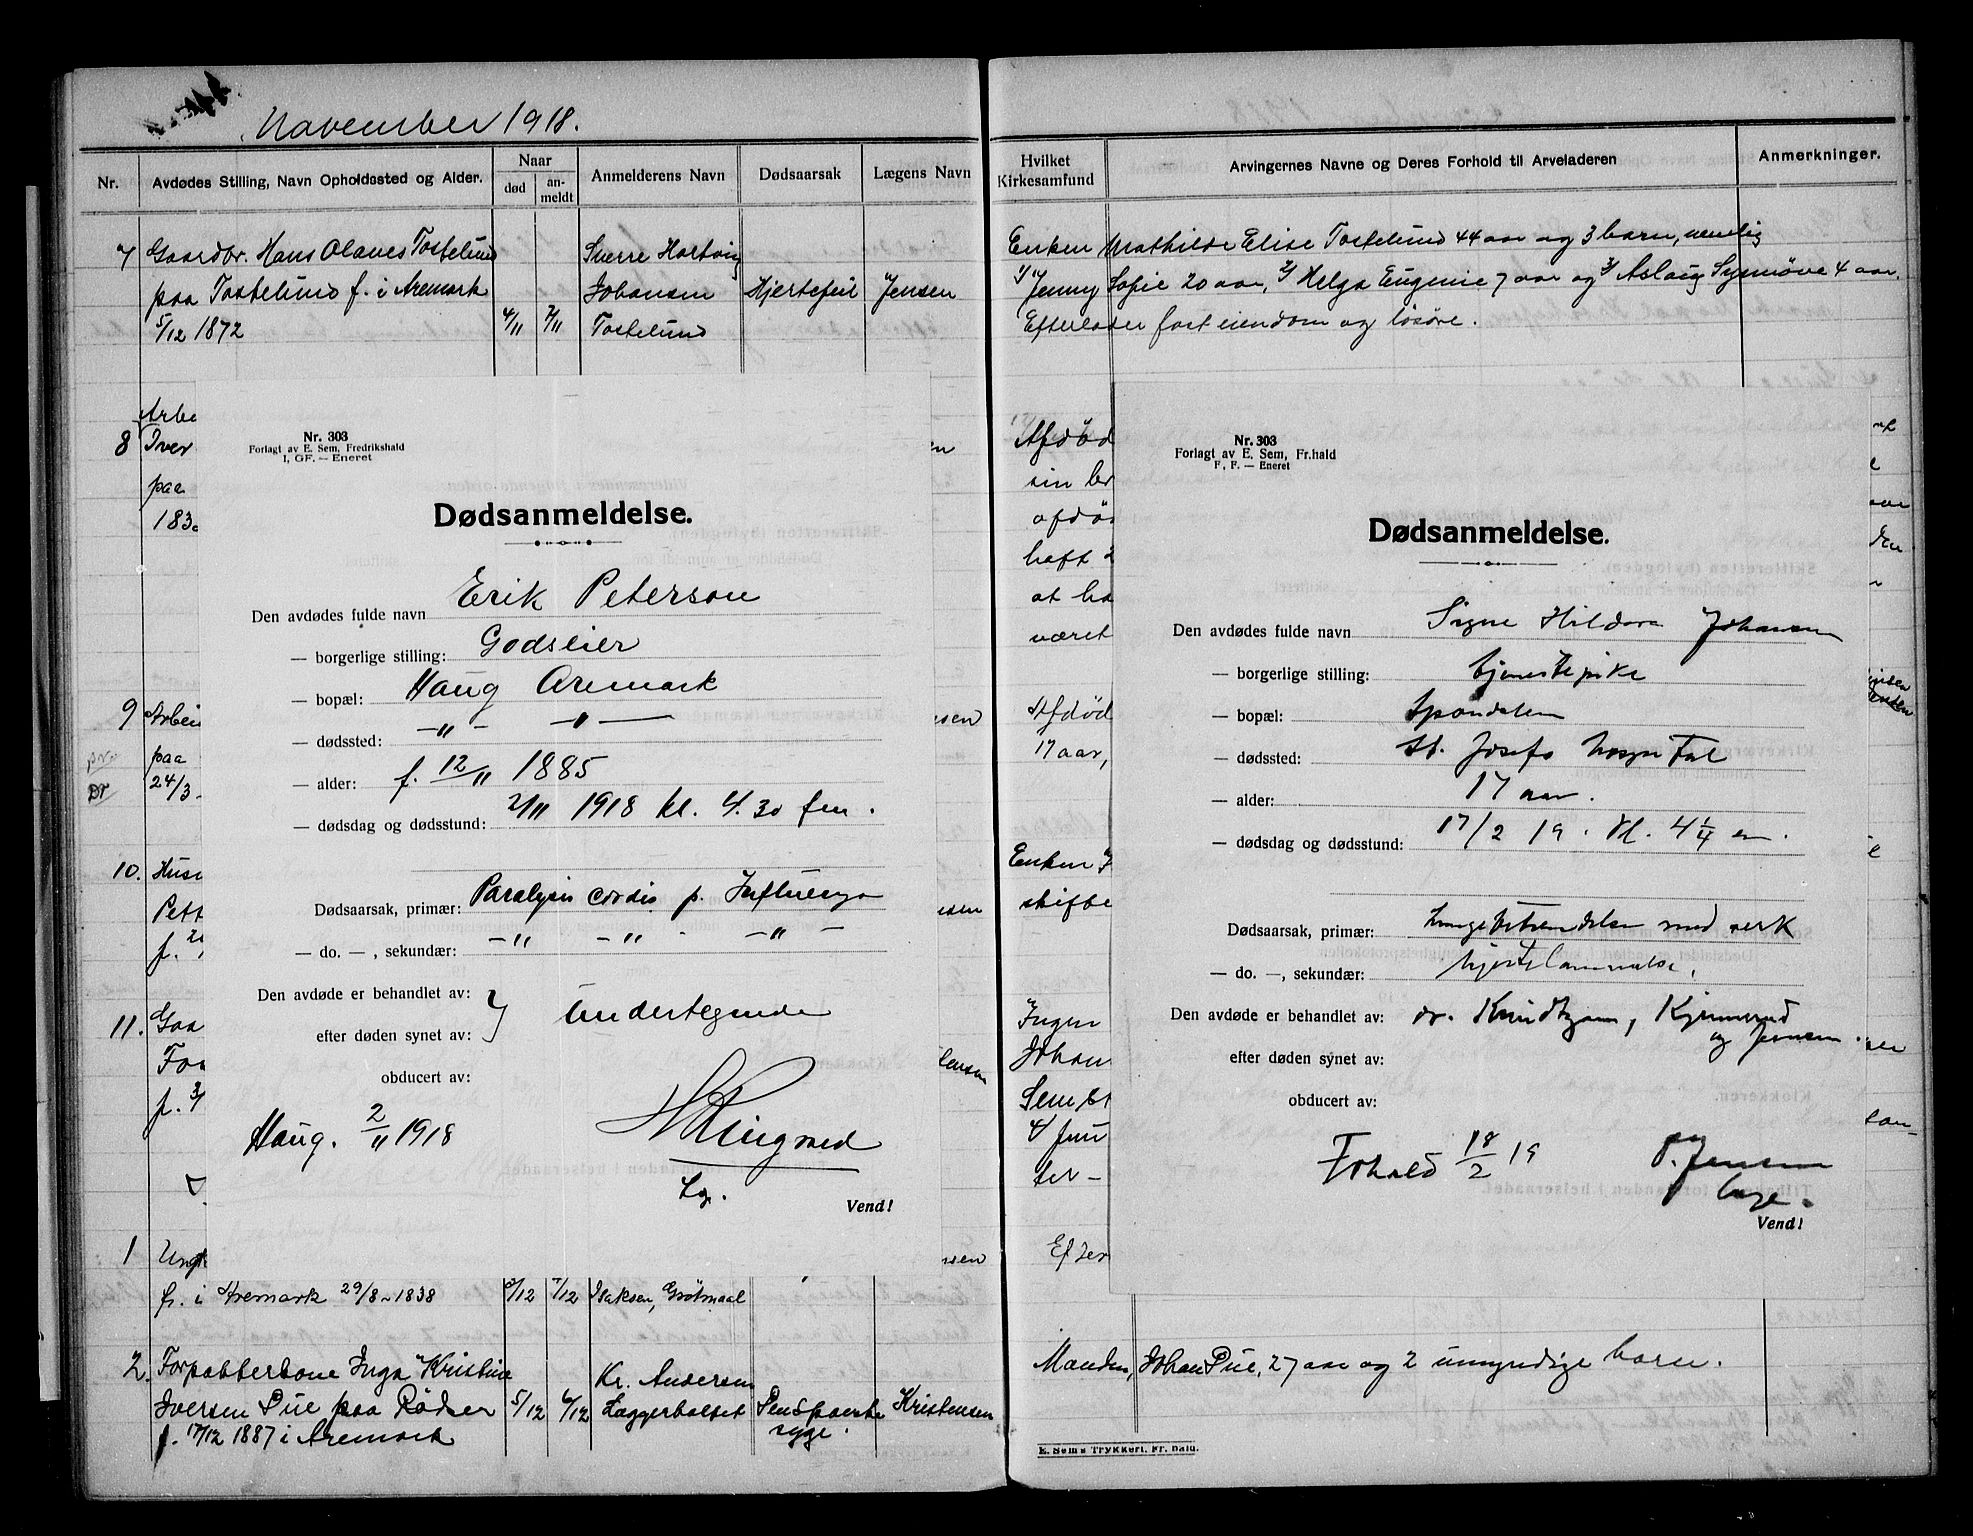 November 1918.
Nr.
Avdødes Stilling, Navn Opholdssted og Alder.
Naar
død
an-
meldt
Anmelderens Navn
Dødsaarsak
Lægens Navn
7
Gaardbr. Hans Olaves Tostelund
paa Tostelund f. i Aremark
5/12 1872
4/11
7/11
Sverre Hartvig
Johansen
Tostelund
Hjertefeil
Jensen
8
Arbe
Iver
paa
183
9
Arbei
paa
24/3
10.
Huse
Pett
f.
11.
Gaa
For
f. 3/
1
Ungk
f. i Aremark 29/8-1838
3/12
7/12
Isaksen, Grötmaal
2.
Forpakterkone Inga Kristine
Iversen Pue paa Rødser
f. 17/12 1887 i Aremark
5/12
6/12
Kr. Andersen
Læggerholtet
Den Spanske
syge.
Kristensen
Nr. 303
Forlagt av E. Sem, Fredrikshald
I, GF. — Eneret
Dødsanmeldelse.
Den avdødes fulde navn Erik Peterson
— borgerlige stilling: Godseier
— bopæl: Haug Aremark
— dødssted: —"— —"—
— alder: f. 12/11 1885
— dødsdag og dødsstund: 2/11 1918 kl. 4.30 fm.
Dødsaarsak, primær: Paralysis cordis p. Influenza
— do. —, sekundær: —"— —"— - —"—
Den avdøde er behandlet av:
efter døden synet av: } Undertegnede
obducert av:
Haug. 2/11 1918
Ringsved
Lg.
Vend!
Hvilket
Kirkesamfund
Arvingernes Navne og Deres Forhold til Arveladeren
Anmerkninger.
Enken Mathilde Elise Tostelund 44 aar og 3 barn, nemlig
1/ Jenny Sofie 20 aar, 2/ Helga Eugenie 7 aar og 3/ Aslaug Synnöve 4 aar.
Efterlader fast eiendom og lösöre.
Afdöd
sin br
afdös
haft 2
at ha
været
Afdöd
17 aar,
Enken
skifte
Ingen
Johan
Sembr
4 Juu
ter -
Efter
Manden, Johan Pue, 27 aar og 2 umyndige barn.
E. Sem's Trykkeri, Fr.hald.
Nr. 303
Forlagt av E. Sem, Fr.hald
F, F. — Eneret
Dødsanmeldelse.
Den avdødes fulde navn Signe Hildora Johansen
— borgerlige stilling: tjenestepike
— bopæl: Spondalen
— dødssted: St. Josefs hospital
— alder: 17 aar.
— dødsdag og dødsstund: 17/2 19. kl. 4 1/4 em.
Dødsaarsak, primær: Lungebetændelse med
— do. —, sekundær: hjertelammelse.
Den avdøde er behandlet av: dr. Kjimrud
og Jensen.
efter døden synet av:
obducert av:
Frhald 18/2 19
P. Jensen
læge.
Vend!